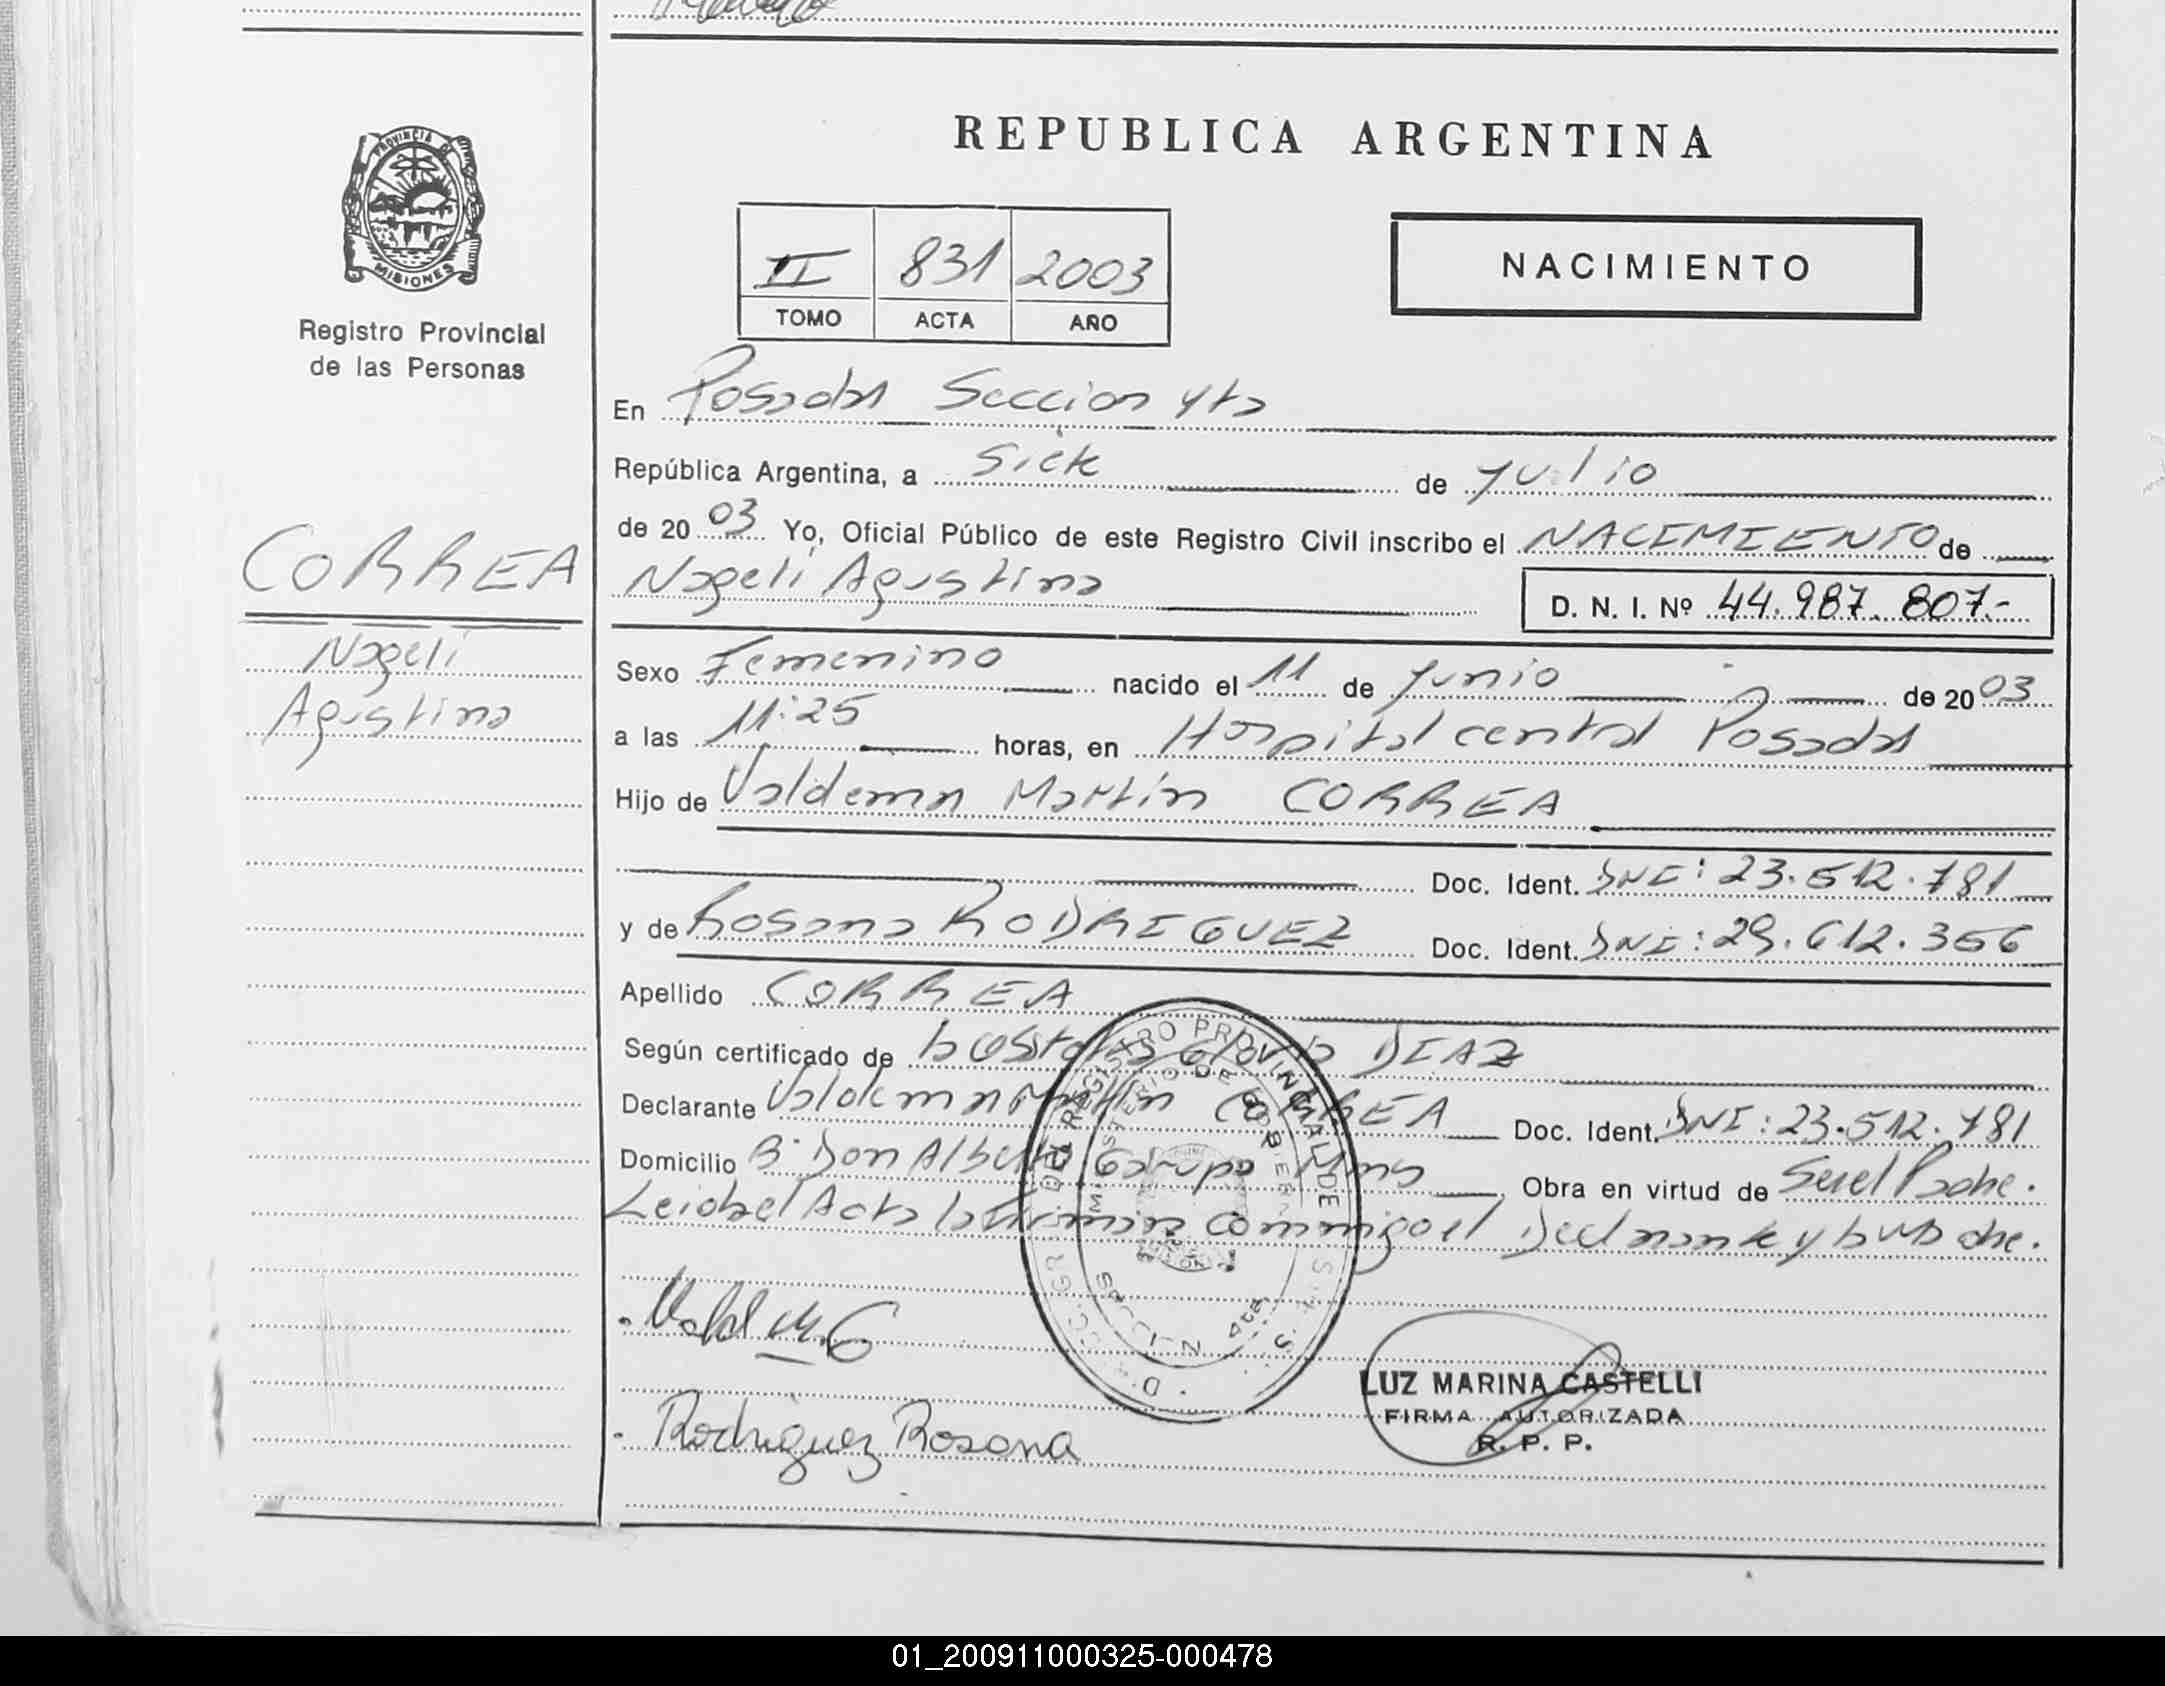 PROVINCIA DE
MISIONES
Registro Provincial
de las Personas
CORREA
Nageli
Agustina
REPUBLICA ARGENTINA
II 831 2003
TOMO ACTA AÑO
NACIMIENTO
En Posadas Seccion 4ta
República Argentina, a Siete de Julio
de 2003 Yo, Oficial Público de este Registro Civil inscribo el NACIMIENTO de
Nageli Agustina D. N. I. Nº 44.987.807.-
Sexo Femenino nacido el 11 de Junio de 2003
a las 11:25 horas, en Hospital central Posadas
Hijo de Valdemar Martín CORREA
Doc. Ident. DNI: 23.512.781
y de Rosana RODRIGUEZ Doc. Ident. DNI: 29.612.356
Apellido CORREA
Según certificado de DIAZ
Declarante Valdemar Martín CORREA Doc. Ident. DNI: 23.512.781
Domicilio Bº Don Alberto Garupa Mns Obra en virtud de Ser el Padre.
Leida el Acta la firman conmigo el Declarante y la Madre.
DEL REGISTRO PROVINCIAL DE
MINISTERIO DE GOBIERNO
Rodriguez Rosana
LUZ MARINA CASTELLI
FIRMA AUTORIZADA
R. P. P.
01_200911000325-000478